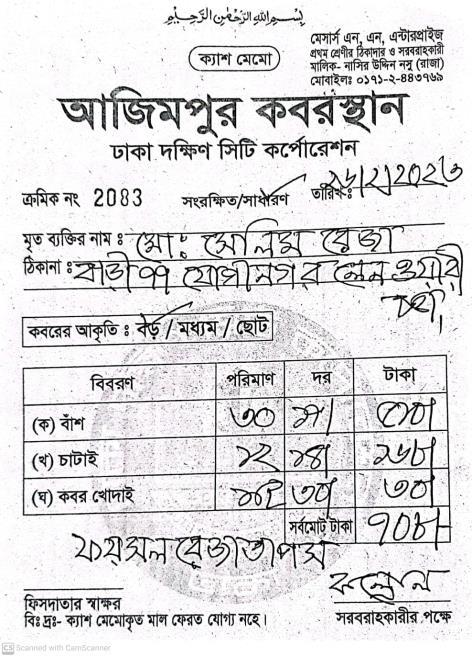 بِسْمِ اللهِ الرَّحْمٰنِ الرَّحِيْمِ
ক্যাশ মেমো
মেসার্স এন, এন, এন্টারপ্রাইজ
প্রথম শ্রেণীর ঠিকাদার ও সরবরাহকারী
মালিক- নাসির উদ্দিন নসু (রাজা)
মোবাইলঃ ০১৭১-২-৪৪৩৭৬৯
আজিমপুর কবরস্থান
ঢাকা দক্ষিণ সিটি কর্পোরেশন
ক্রমিক নং 2083 সংরক্ষিত/সাধারণ তারিখঃ ২৬/২/২০২৩
মৃত ব্যক্তির নাম ঃ মোঃ সেলিম রেজা
ঠিকানা ঃ বাড়ী ৭৭ যোগীনগর লেন ওয়ারী
কবরের আকৃতি ঃ বড় / মধ্যম / ছোট
বিবরণ পরিমাণ দর টাকা
(ক) বাঁশ ৩০
(খ) চাটাই ১২ ১৪ ১৬৮
(ঘ) কবর খোদাই ৩০ ৩০
সর্বমোট টাকা ৭০৮
ফয়সল রেজা তাপস
কল্লোল
ফিসদাতার স্বাক্ষর
সরবরাহকারীর পক্ষে
বিঃ দ্রঃ- ক্যাশ মেমোকৃত মাল ফেরত যোগ্য নহে।
CS Scanned with CamScanner